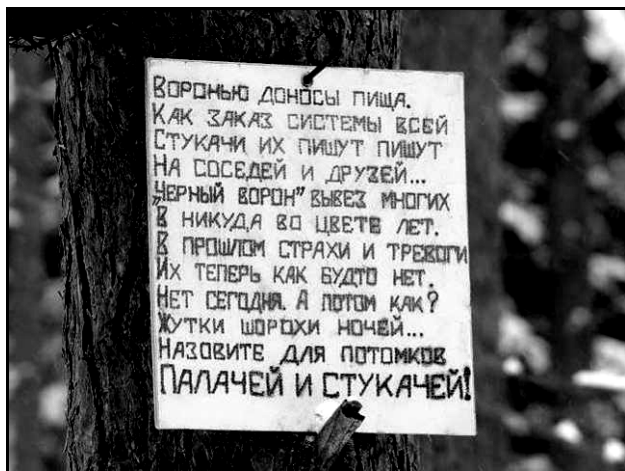 Воронью доносы пища.
Как заказ системы всей
Стукачи их пишут пишут
На соседей и друзей...
„Черный ворон” вывез многих
В никуда во цвете лет.
В прошлом страхи и тревоги
Их теперь как будто нет.
Нет сегодня. А потом как?
Жутки шорохи ночей...
Назовите для потомков
Палачей и стукачей!